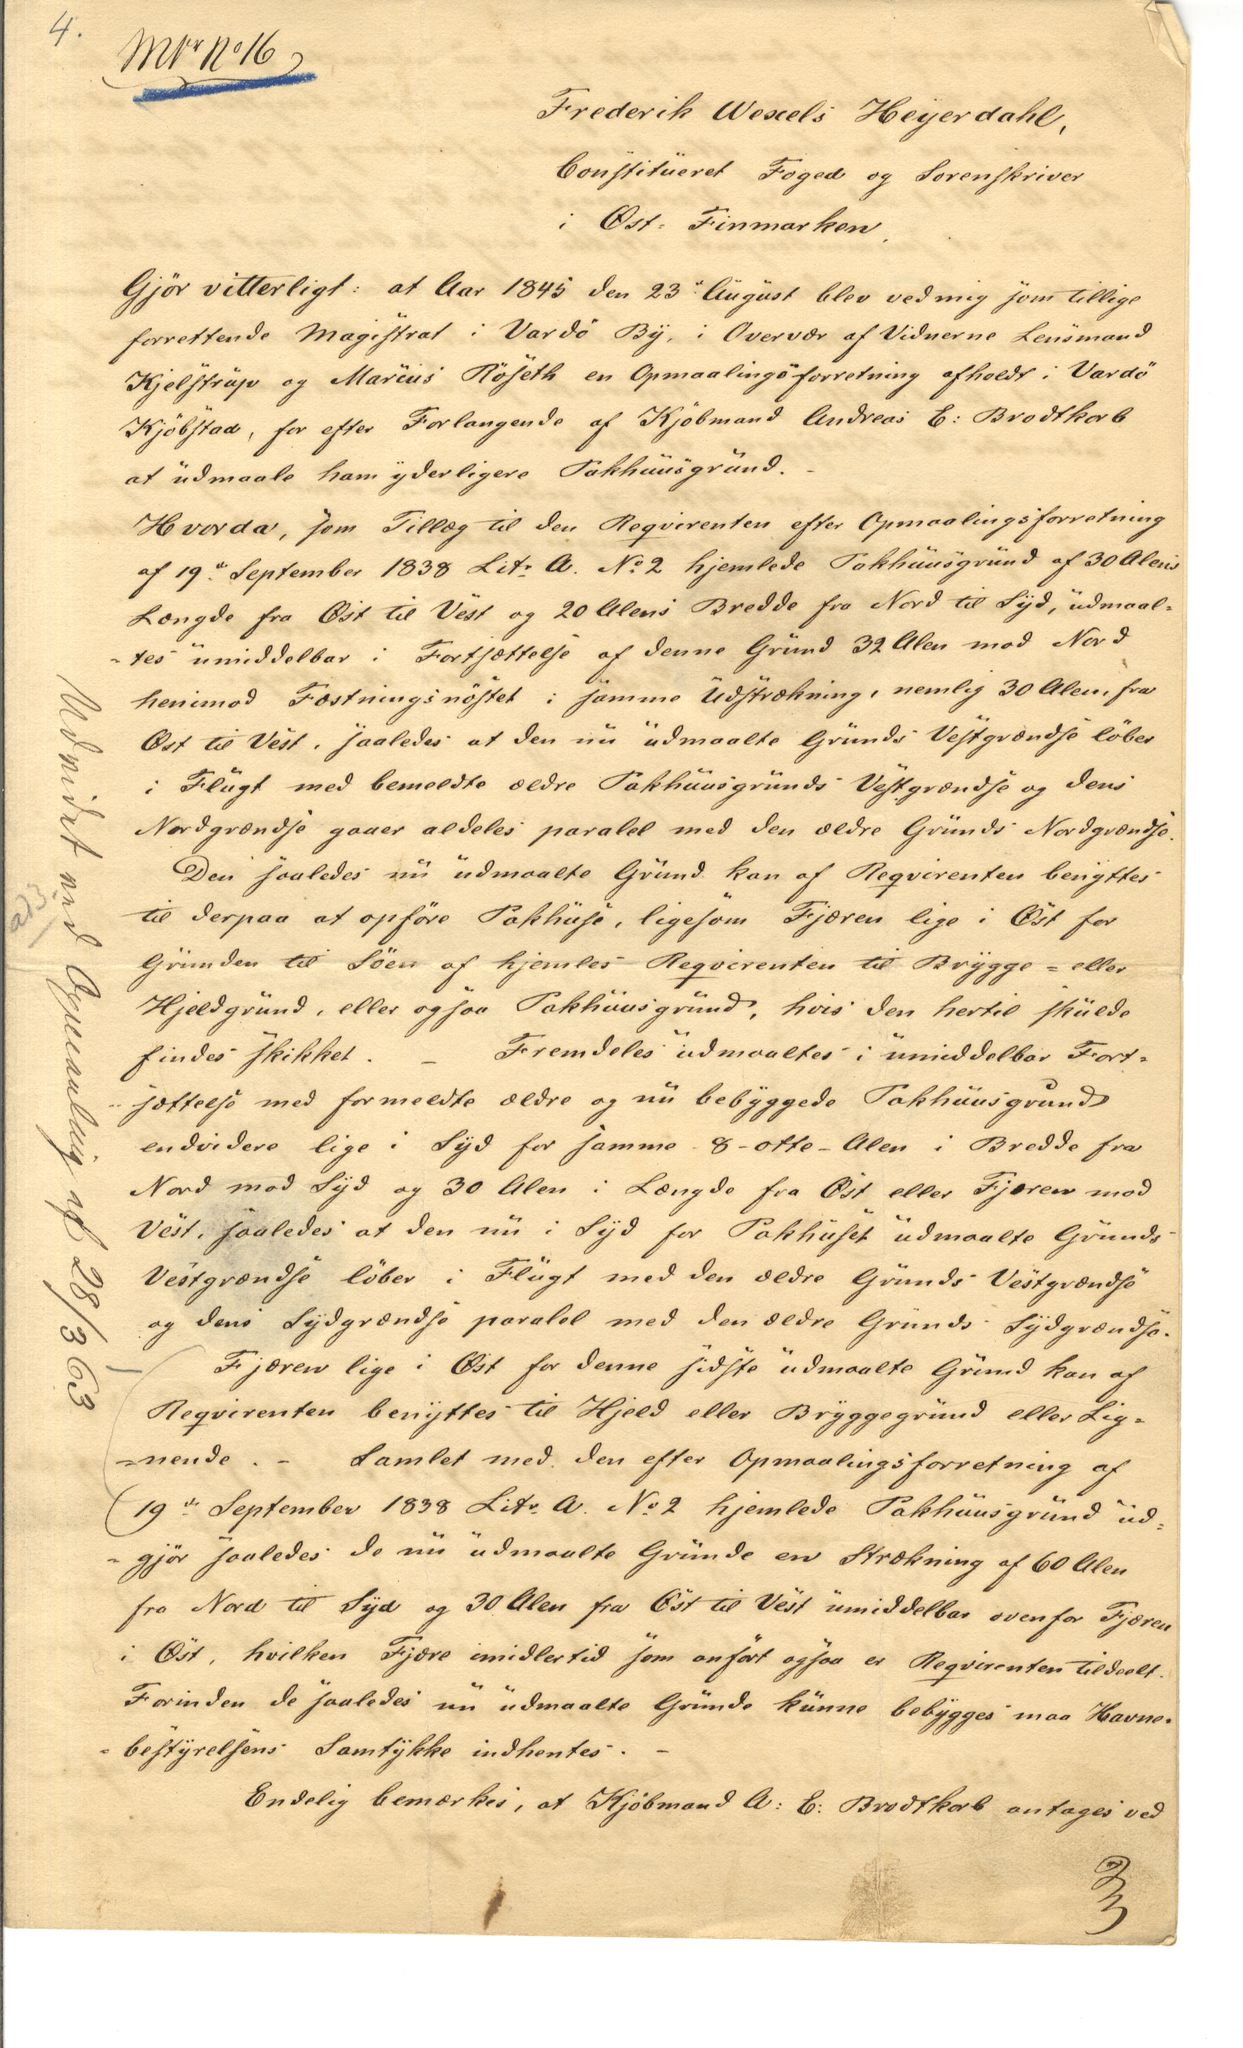 4.
Mtr No 16
Frederik Wexels Heyerdahl,
Constitueret Foged og Sorenskriver
i Øst-Finmarken,
Gjör vitterligt: at Aar 1845 den 23de August blev ved mig som tillige
forrettende Magistrat i Vardö By, i Overvær af Vidnerne Lensmand
Kjelstrup og Marcus Röseth en Opmaalingsforretning afholdt i Vardö
Kjöbstad, for efter Forlangende af Kjöbmand Andreas E: Brodtkorb
at udmaale ham yderligere Pakhuusgrund. -
Hvorda, som Tillæg til den Reqvirenten efter Opmaalingsforretning
af 19de September 1838 Litr A. No 2 hjemlede Pakhuusgrund af 30 Alens
Længde fra Øst til Vest og 20 Alens Bredde fra Nord til Syd, udmaal-
-tes umiddelbar i Fortsættelse af denne Grund 32 Alen mod Nord
henimod Fæstningsnöstet i samme Udstrækning, nemlig 30 Alen, fra
Øst til Vest, saaledes at den nu udmaalte Grunds Vestgrændse löber
i Flugt med bemeldte ældre Pakhuusgrunds Vestgrændse og dens
Nordgrændse gaaer aldeles paralel med den ældre Grunds Nordgrændse.
Den saaledes nu udmaalte Grund kan af Reqvirenten benyttes
til derpaa at opföre Pakhuse, ligesom Fjæren lige i Øst for
Grunden til Söen af hjemles Reqvirenten til Brygge- eller
Hjeldgrund, eller ogsaa Pakhuusgrund, hvis den hertil skulde
findes skikket. - Fremdeles udmaaltes i umiddelbar Fort-
-sættelse med formeldte ældre og nu bebyggede Pakhuusgrund
endvidere lige i Syd for samme 8-otte-Alen i Bredde fra
Nord mod Syd og 30 Alen i Længde fra Øst eller Fjæren mod
Vest, saaledes at den nu i Syd for Pakhuset udmaalte Grunds
Vestgrændse löber i Flugt med den ældre Grunds Vestgrændse
og dens Sydgrændse paralel med den ældre Grunds Sydgrændse.
Fjæren lige i Øst for denne sidste udmaalte Grund kan af
Reqvirenten benyttes til Hjeld eller Bryggegrund eller Lig-
-nende. - Samlet med den efter Opmaalingsforretning af
19de September 1838 Litr A. No 2 hjemlede Pakhuusgrund ud-
-gjör saaledes de nu udmaalte Grunde en Strækning af 60 Alen
fra Nord til Syd og 30 Alen fra Öst til Vest umiddelbar ovenfor Fjæren
i Øst, hvilken Fjære imidlertid som anfört ogsaa er Reqvirenten tildeelt.
Forinden de saaledes nu udmaalte Grunde kunne bebygges maa Havne-
-bestyrelsens Samtykke indhentes. -
Endelig bemærkes, at Kjöbmand A: E: Brodtkorb antages ved
Udvidet ved Opmaaling af 28/3 63
ad 3